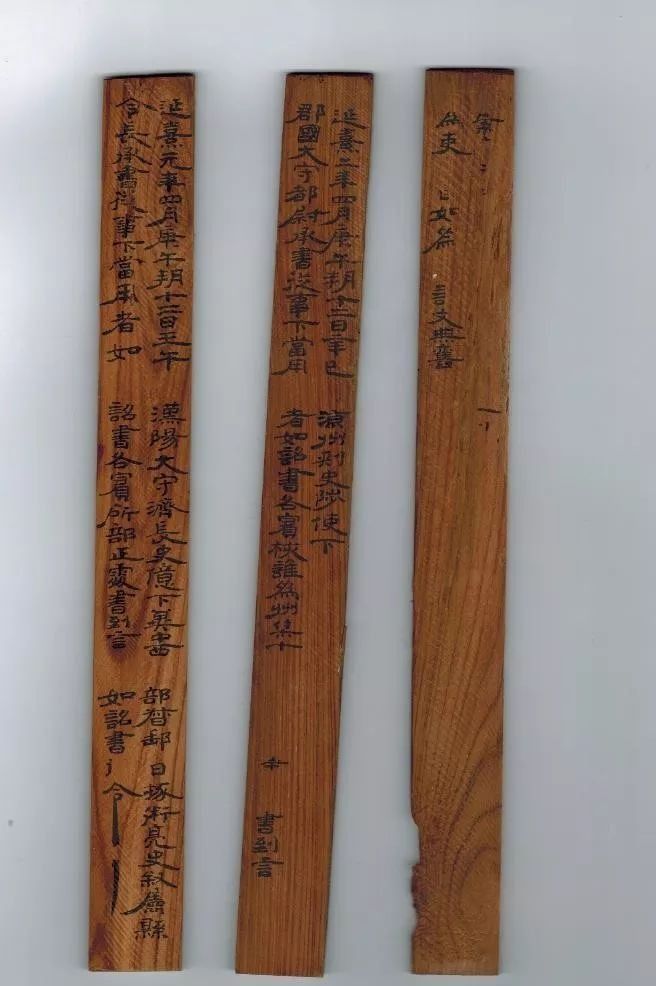 依吏 日如為 言文典舊
延熹二年四月庚午朔十二日辛巳 涼州刺史陟使下
郡國大守都尉承書從事下當用 者如詔書各實核誰為州集十 書到言
延熹元年四月庚午朔十二日壬午 漢陽大守濟長史億下冀中西 部督郵 曰掾術亮史敘屬縣
令長承書從事下當用者如 詔書各實所部正處書到言 如詔書 令